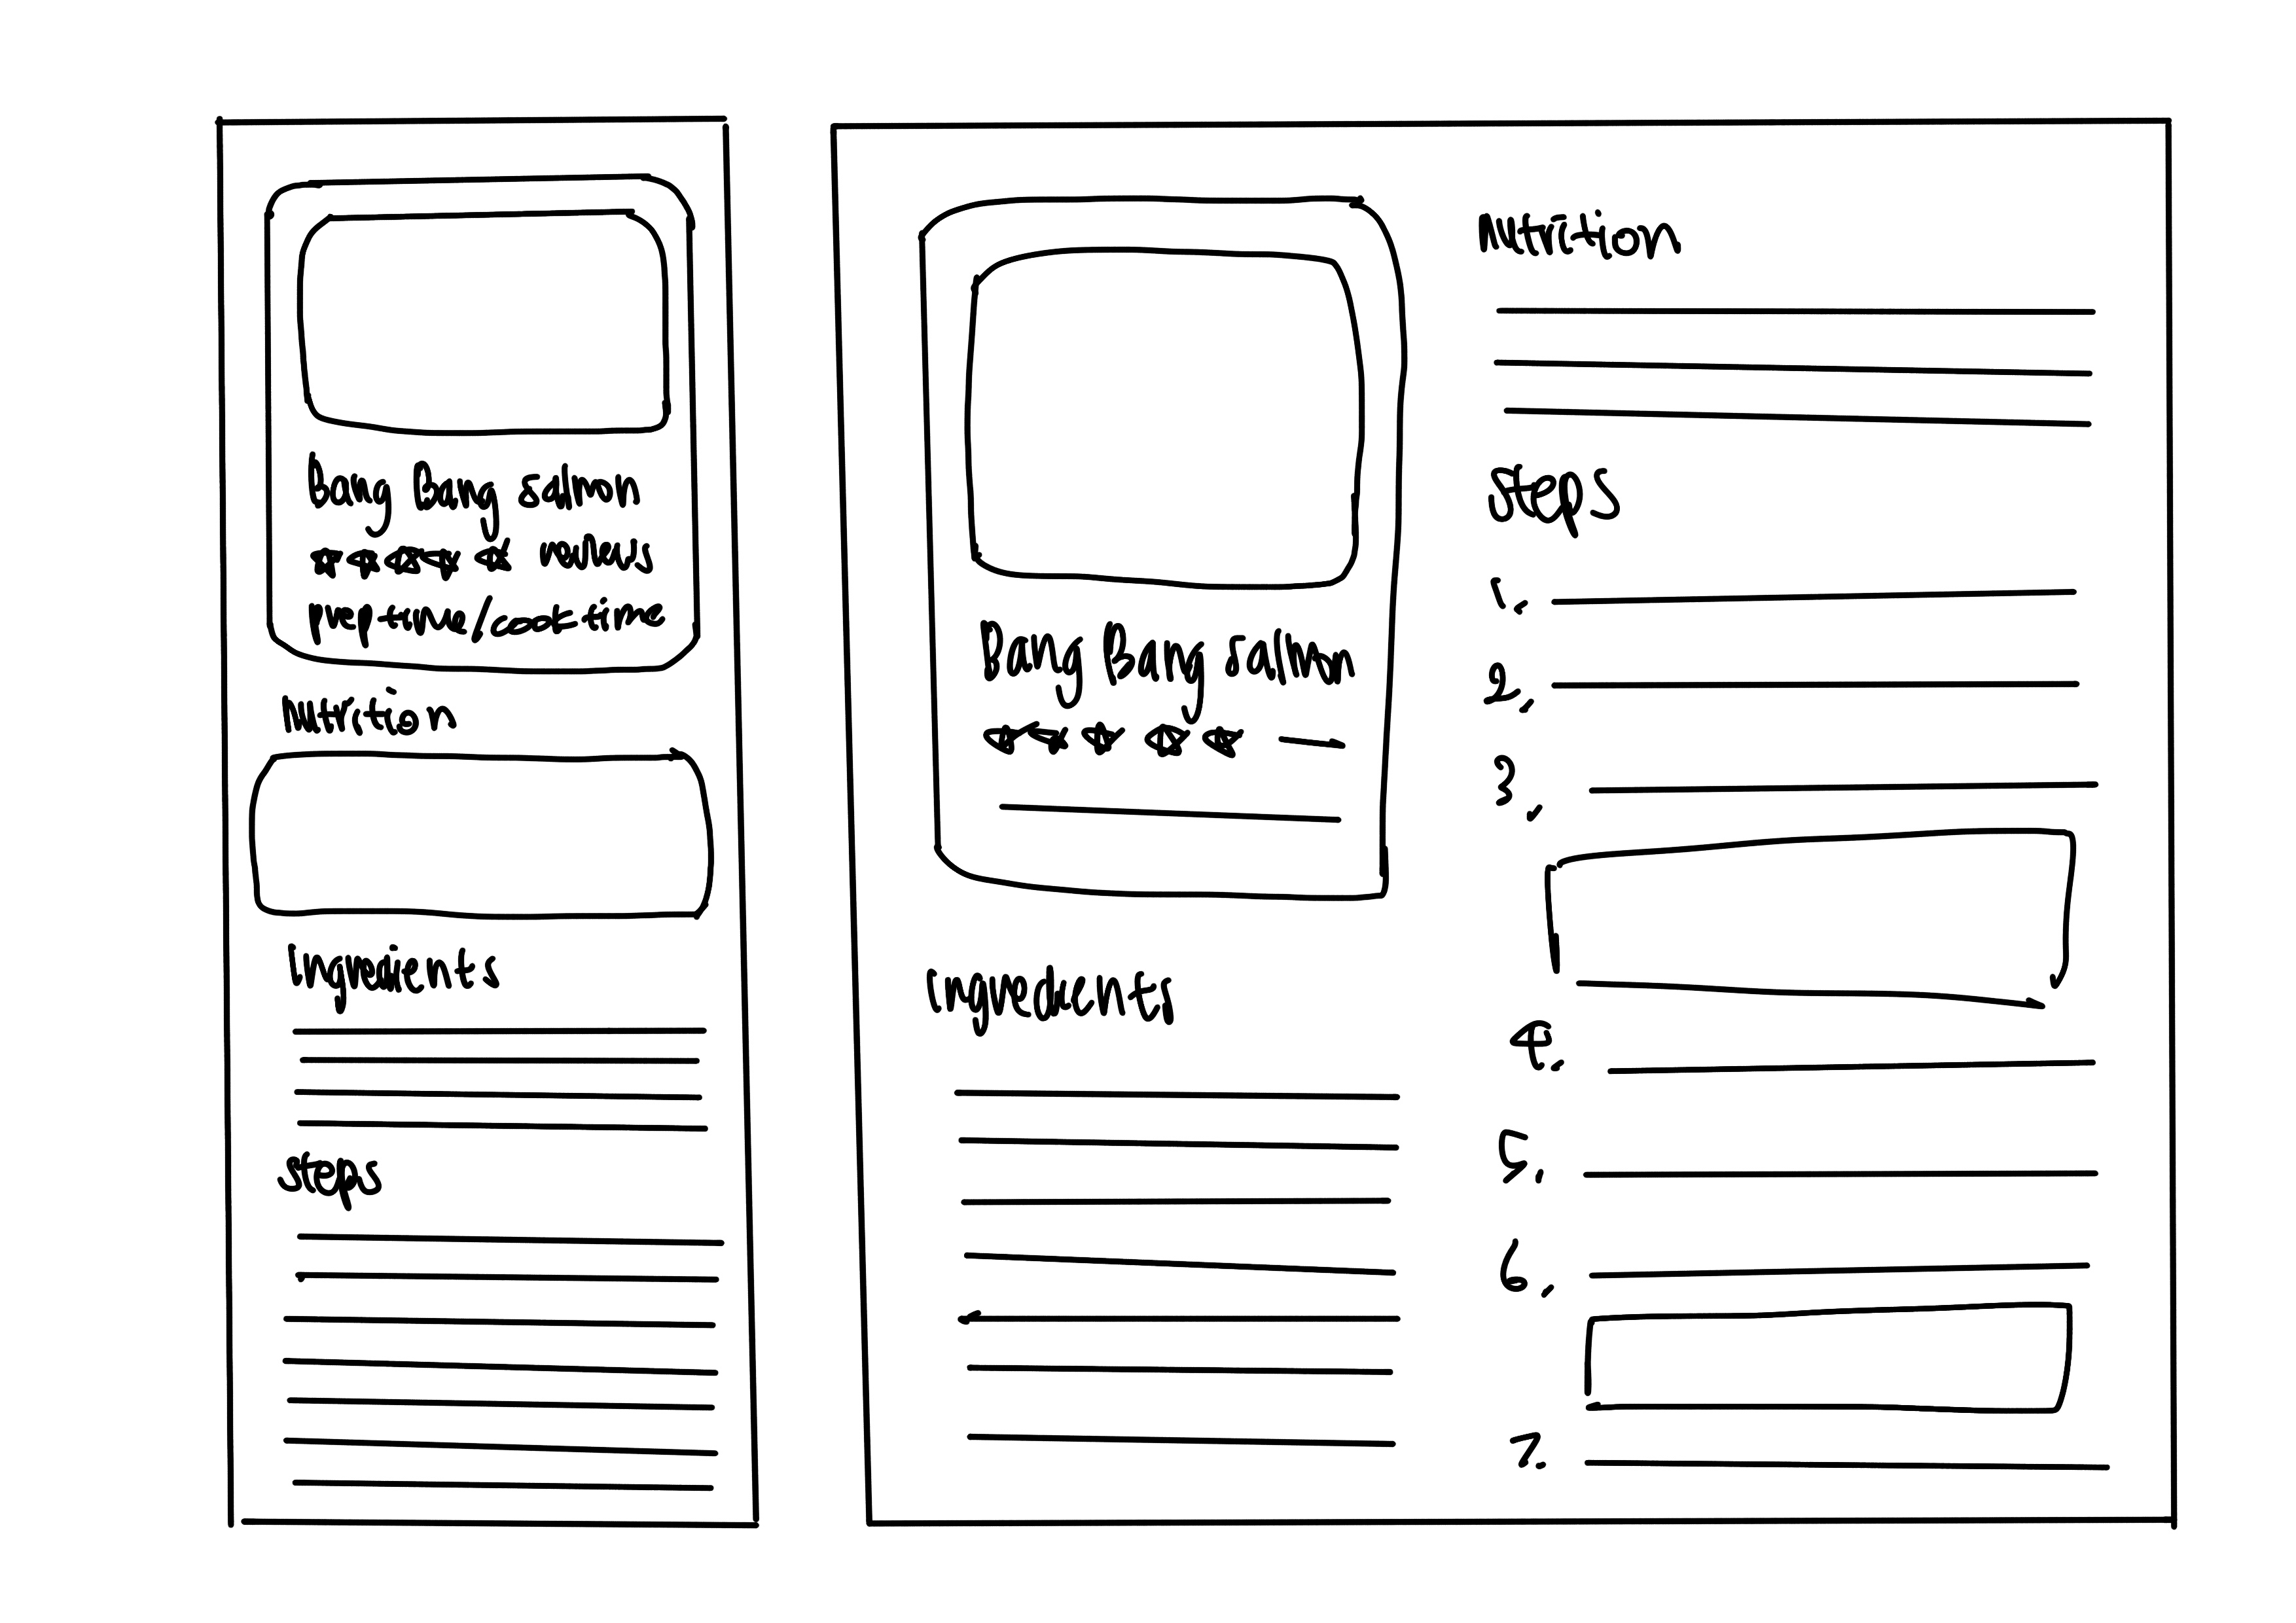 Bang Bang salmon
reviews
prep time/cook time
Nutrition
Ingredients
Steps
Bang Bang salmon
Ingredients
Nutrition
Steps
1.
2.
3.
4.
5.
6.
7.